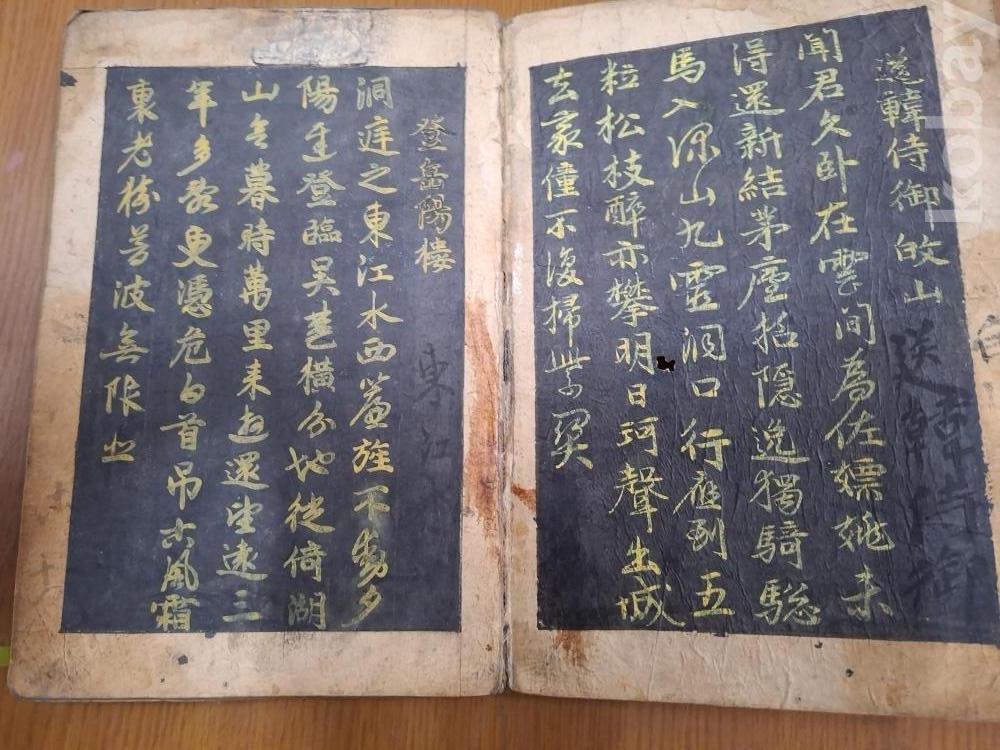 送韓侍御皈山
聞君久卧在雲間為佐嫖姚未
得還新結茅廬招隠逸獨騎驄
馬入深山九靈洞口行應到五
粒松枝醉亦攀明日珂聲出城
去家僮不復掃柴関
送韓侍御
登岳陽樓
東江
洞庭之東江水西簾旌不動夕
陽遲登臨吳蜀橫分地徙倚湖
山欲暮時萬里来遊還望遠三
年多難更憑危白首吊古風霜
裏老樹蒼波無限悲
kobay